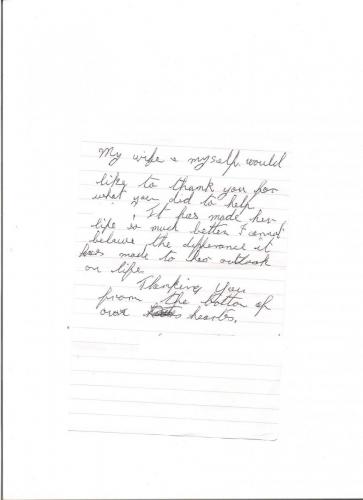 My wife & myself would
like to thank you for
what you did to help
. It has made her
life so much better I cannot
beleive the differance it
has made to her outlook
on life
Thanking You
from the bottom of
our hearts.